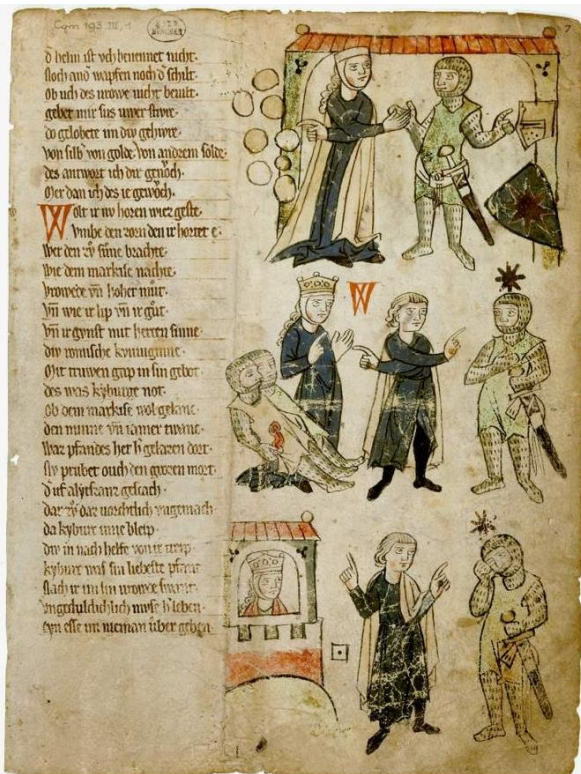 Cgm 193 III, 1
7
d helm ist vch benennet nicht.
noch and wapfen noch d schilt.
ob uch des urowe nicht beuilt.
gebet mir sus uwer stivre.
do gelobete im div gehivre.
von silb von golde. von andrem solde.
des antwort ich dir genvoch.
Mer dan ich des ie gewvoch.
Wolt ir nv horen wiez geste.
Vmbe den zorn den ir hortet e.
wer den zv svne brachte.
wie dem markise nachte.
vrowede vñ hoher mvt.
vñ wie ir lip vñ ir gvt.
vñ ir gvnst mit herzen sinne
div romische kvniginne.
Mit truwen gap in sin gebot
des was kyburge not.
ob dem markise wol gelanc.
den minne vñ iamer twanc.
waz pfandes het h gelazen dort.
Nv prvbet ouch den grozen mort.
d uf alytschanz geschach.
dar zv daz vorchtlich vngemach
da kyburc inne bleip.
div in nach helfe von ir treip
kyburc was sin liebeste pfant.
nach ir im sin vrowede swant.
vngedvldichlich mvse h leben.
W